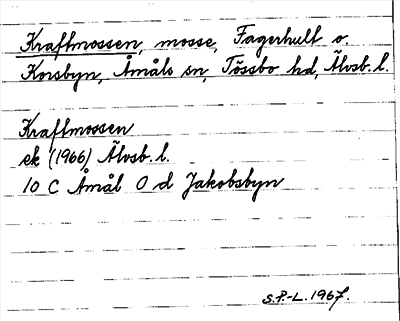 Kraftmossen, mosse, Fagerhult o.
Korsbyn, Åmåls sn, Tössbo hd, Älvsb. l.
Kraftmossen
ek (1966) Älvsb. l.
10 C Åmål 0 d Jakobsbyn
S.P.-L. 1967.